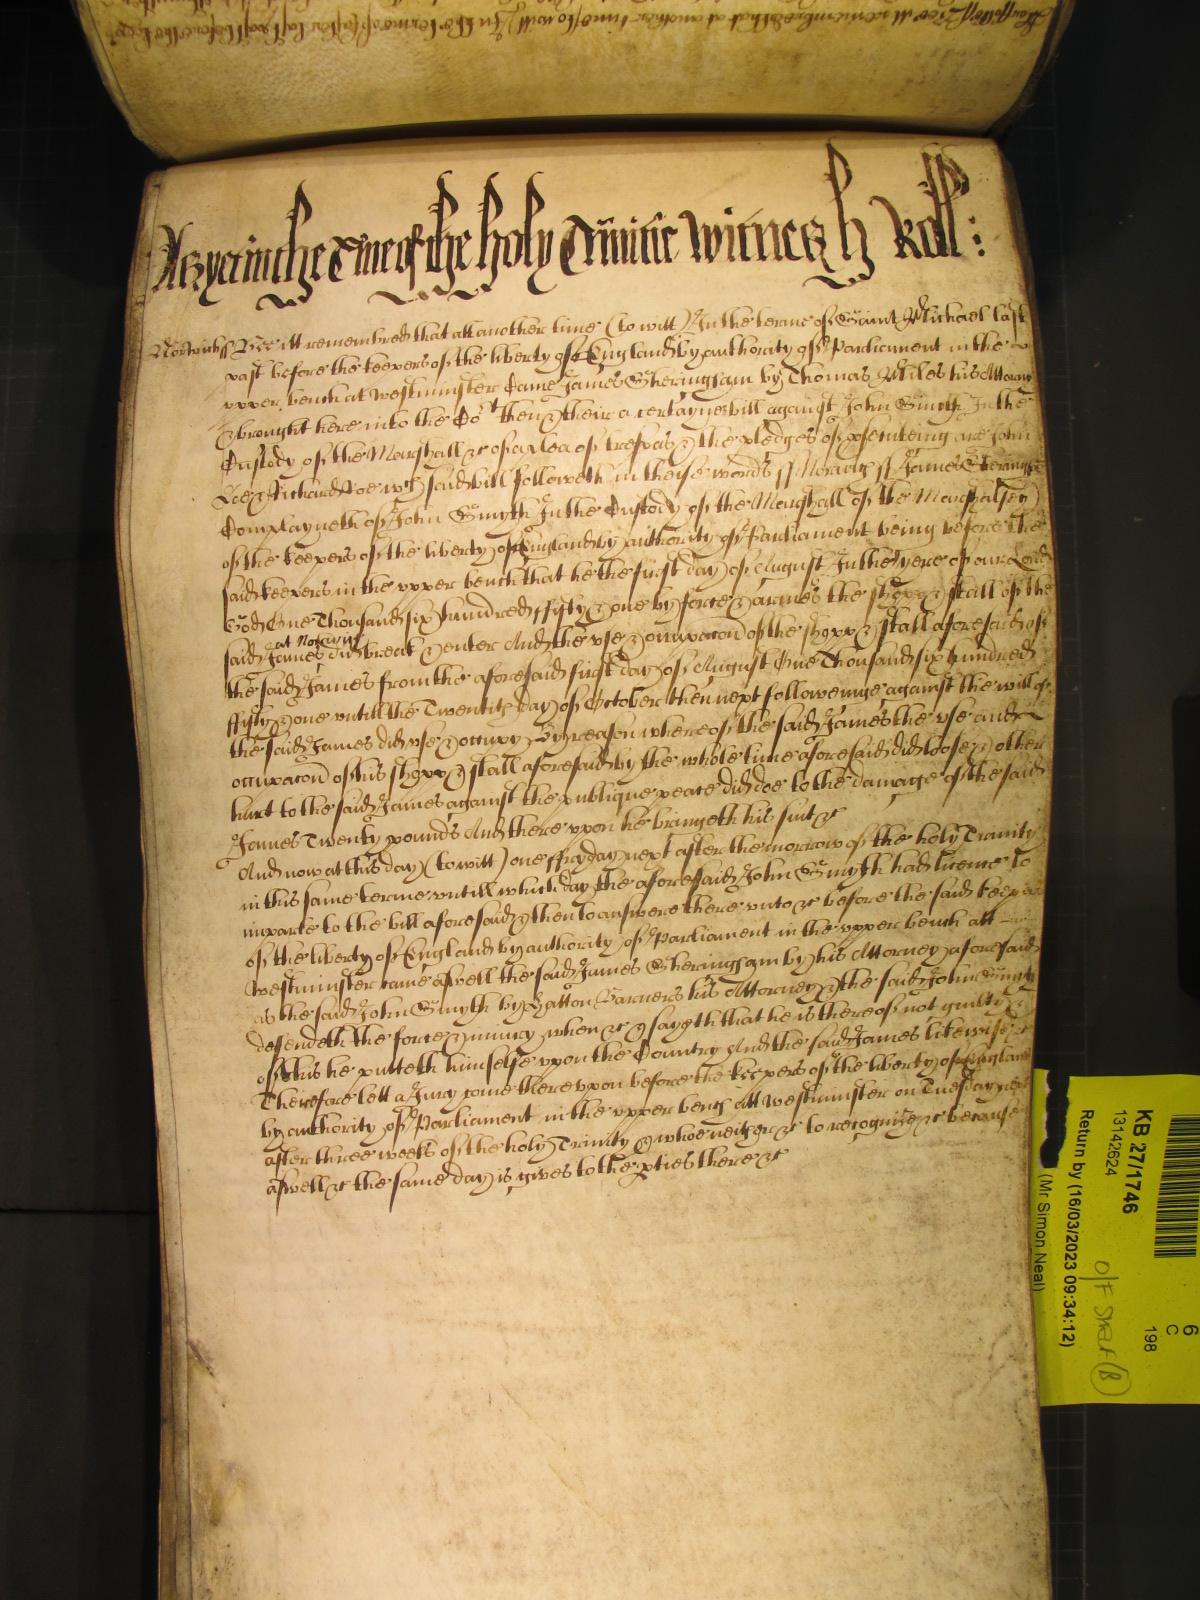 As yet in the Terme of the holy Trinitie Witnes h Roll:
Norwich ss Bee itt remembred that att another time (to witt) In the terme of Saint Michael last
past before the keepers of the liberty of England by authority of Parliament in the
upper bench at Westminster Came James Sheringham by Thomas Miles his Attorny
& brought here into the Cort then & their a certayne bill against John Smyth In the
Custody of the Marshall &c of a plea of trespas & the pledges of psecuteing are John
Doe & Richard Roe wch said bill followeth in theise words ss Norwich ss James Sheringham
Complayneth of John Smyth In the Custody of the Marshall of the Marshalsey
of the keepers of the liberty of England by authority of Parliament being before the
said keepers in the upper bench that he the first day of August In the yere of our Lord
God One Thousand six hundred fifty & one by force & armes the shopp & stall of the
at Norwich
said James did breake & enter And the use & occupacon of the shopp & stall aforesaid of
the said James from the aforesaid first day of August One Thousand six hundred
fifty & one untill the Twentith day of October then next followeinge against the will of
the said James did use & occupy By reason whereof the said James the use and
occupacon of his shopp & stall aforesaid by the whole time aforesaid did loose & other
hurt to the said James against the publique peace did doe to the damage of the said
James Twenty pounds And there upon he bringeth his suit &c
And now at this day (to witt) one ffryday next after the morrow of the holy Trinity
in this same terme untill which day the aforesaid John Smyth had licence to
imparle to the bill aforesaid & then to answere there unto &c before the said keepers
of the liberty of England by authority of Parliament in the upper bench att
Westminster came aswell the said James Sheringham by his Attorney aforesaid
as the said John Smyth by Hatton Barners his Attorney & the said John Smyth
defendeth the force & iniury when &c & sayeth that he is thereof not guilty &
of this he putteth himselfe upon the Country And the said James likewise &c
Therefore lett a Jury come thereupon before the keepers of the liberty of England
by authority of Parliament in the upper bench att Westminster on Tuesday next
after three weeks of the holy Trinity & whoe neither &c to recognize &c because
aswell &c the same day is given to the pties there &c
KB 27/1746
13142624
Return by (16/03/2023 09:34:12)
(Mr Simon Neal)
6
C
198
O/F Shelf (B)